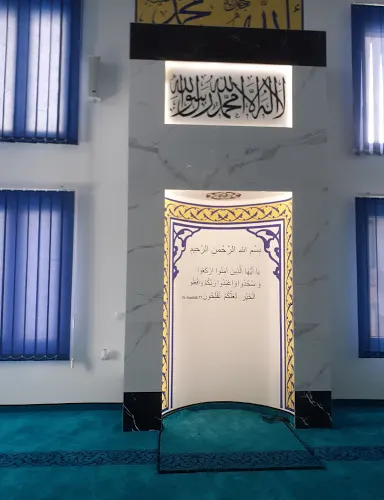 الله محمد
لا إله إلا الله محمد رسول الله
بسم الله الرحمن الرحيم
يا أيها الذين آمنوا اركعوا
و سجدوا واعبدوا ربكم وافعلو
الخير لعلكم تفلحون